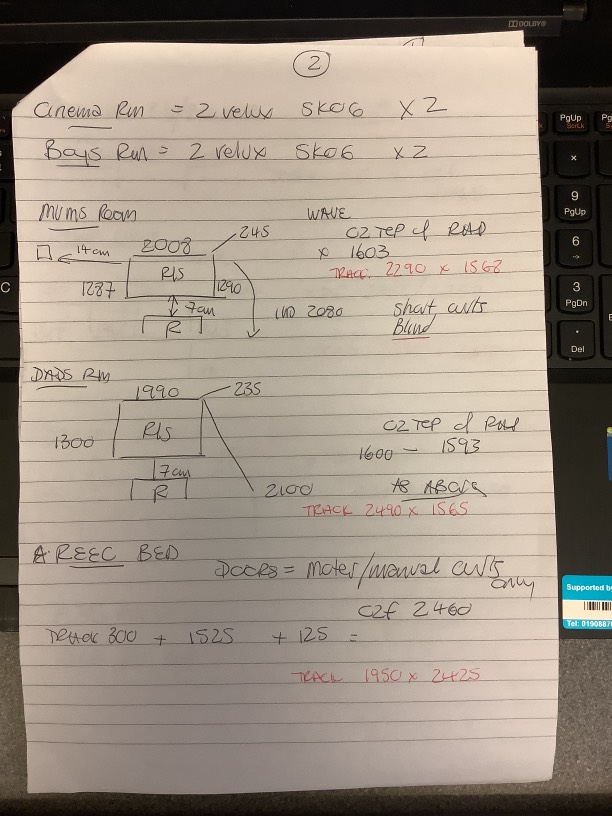 2
Cinema Rm = 2 velux SK06 x2
Boys Rm = 2 velux SK06 x2
MUMS ROOM
WAVE
245
14cm
2008
C2 TOP of RAD
R/S
x 1603
1287
1290
TRACK 2290 x 1568
7cm
R
2080
Short curts
Blind
DADS RM
1990
235
R/S
1300
C2 TOP of RAD
1600 - 1593
7cm
R
2100
AS ABOVE
TRACK 2490 x 1565
BED
DOORS = Motor/manual curts
only
C2F 2460
TRACK 300 + 1525 + 125 =
TRACK 1950 x 2425
DOLBY
PgUp
ScrLk
9
PgUp
6
3
PgDn
Del
C
Supported by
Tel: 0190887